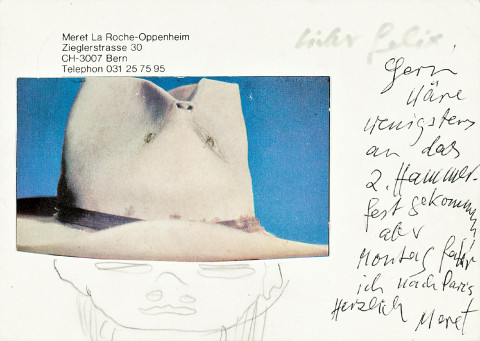 Meret La Roche-Oppenheim
Zieglerstrasse 30
CH-3007 Bern
Telephon 031 25 75 95
Lieber Felix
Gern
wäre
wenigstens
an das
2. Hammer-
fest gekommen
aber
Montag fahr
ich nach Paris
Herzlich Meret